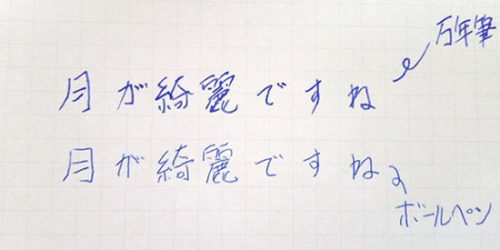 万年筆
月が綺麗ですね
月が綺麗ですね
ボールペン